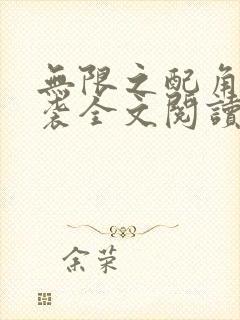 無限之配角
袭全文閱讀
余荣